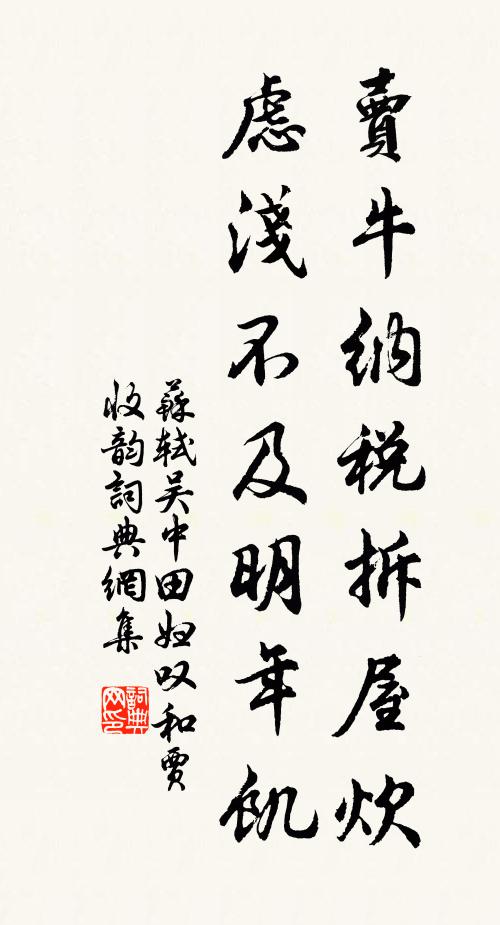 賣牛納税拆屋炊
慮淺不及明年飢
蘇軾吴中田妇叹和賈
收韵詞典網集
詞典
网印